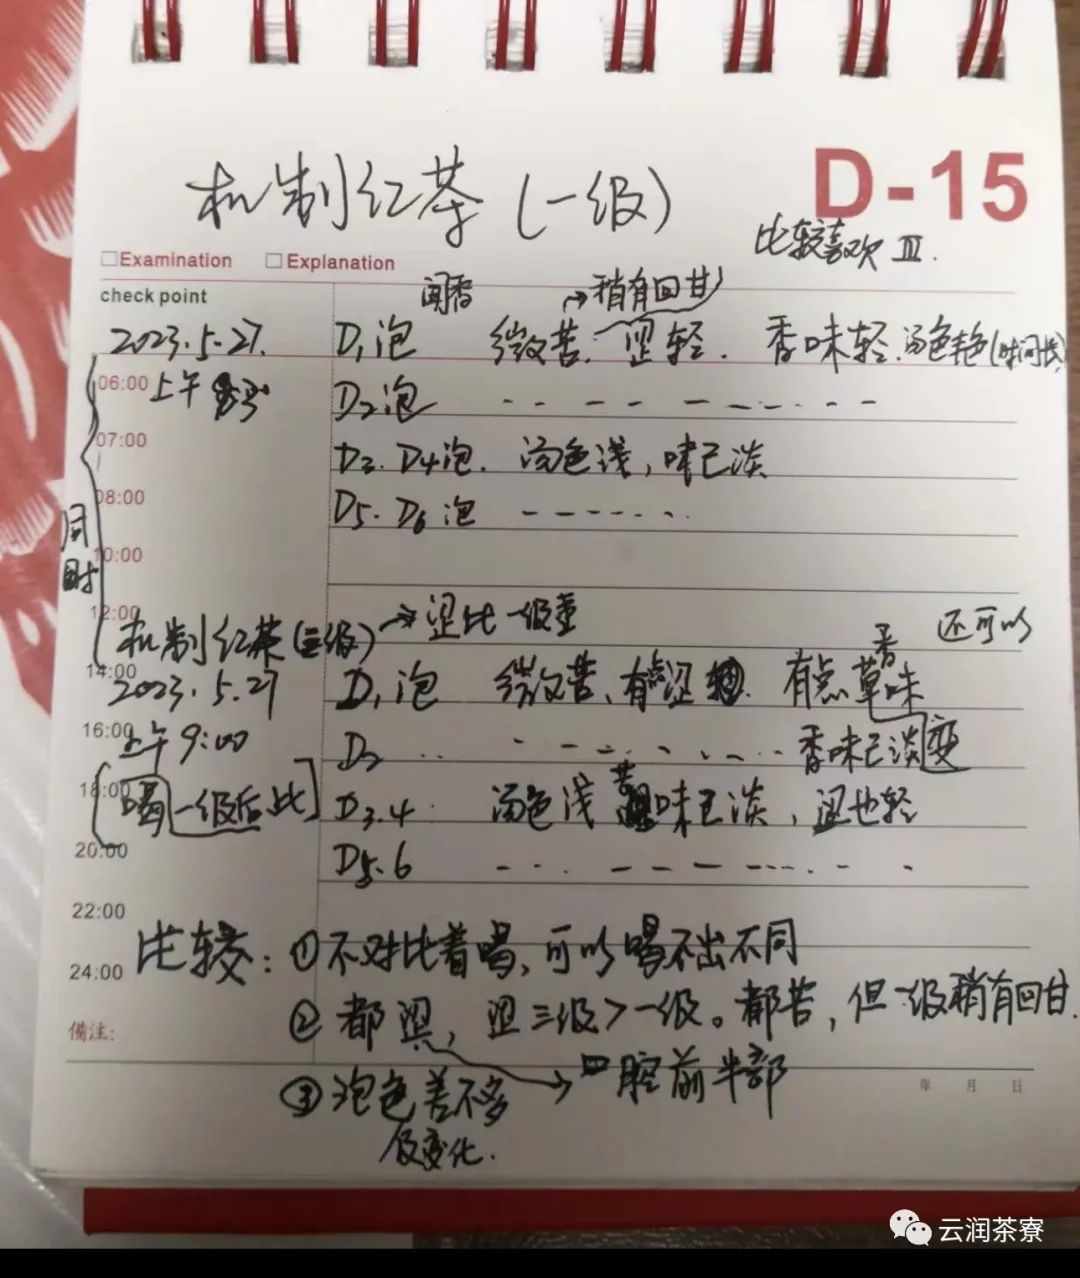 D-15
机制红茶(一级)
比较喜欢 III.
□Examination □Explanation
check point
闻香 → 稍有回甘
2023.5.27. D₁泡 微苦. 涩轻. 香味轻.汤色艳(时间长)
06:00 上午 D₂泡 - - - - - - - - -
07:00
D₃. D₄泡. 汤色浅, 味已淡
08:00
D₅. D₆泡 - - - - - - .
同时
10:00
12:00
机制红茶(三级) → 涩比一级重
还可以
14:00
2023.5.27 D₁泡 微苦、有点涩 . 有点草香味
16:00
上午9:00 D₂ .. - - - - - - ... 香味已淡变
18:00
[喝一级后比] D₃.₄. 汤色浅 苦味已淡, 涩也轻
20:00
D₅.6 - - . - - - - - - .
22:00
比较: ①不对比着喝, 可以喝不出不同
24:00
②都涩, 涩三级>一级。都苦, 但一级稍有回甘.
備注:
→ 口腔前半部
③泡色差不多
及变化.
年 月 日
云润茶寮